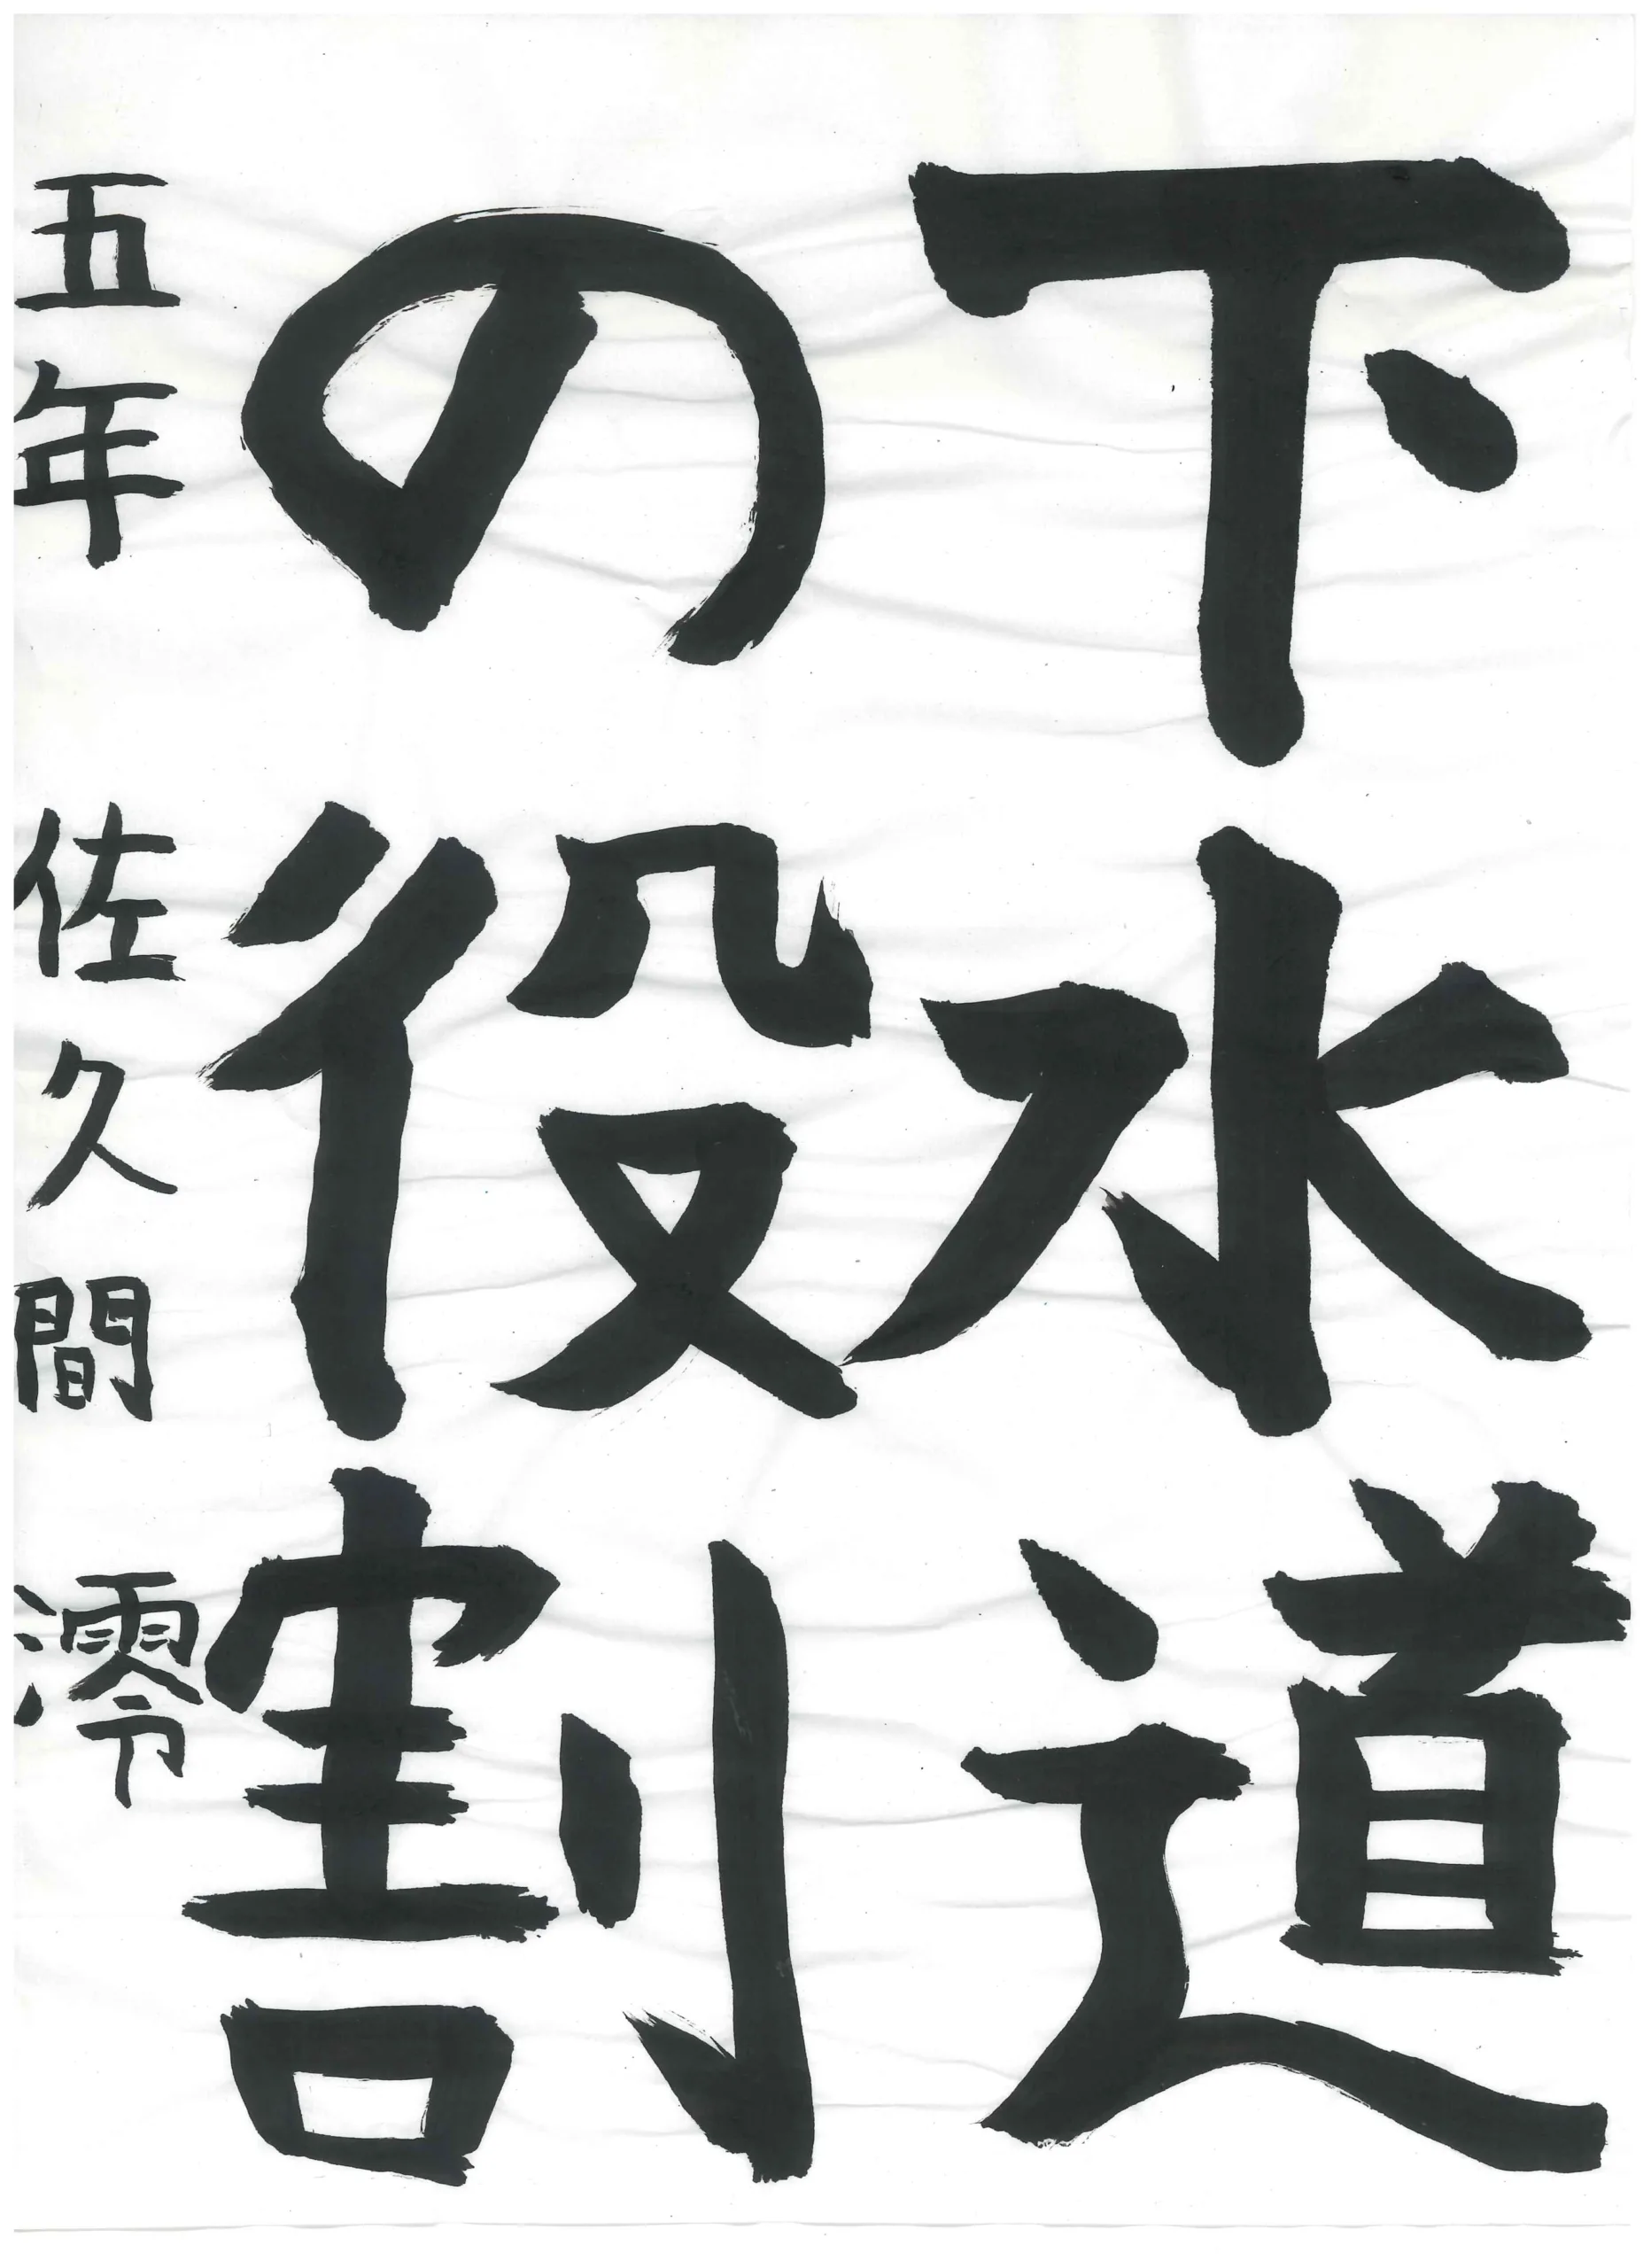 下水道
の役割
五年 佐久間 澪